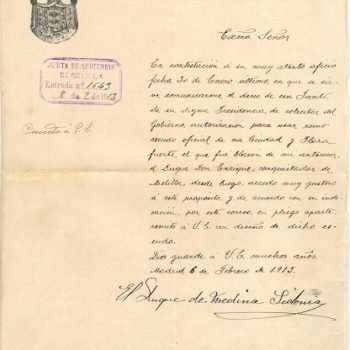 Exmo Señor
JUNTA DE ARBITRIOS
DE MELILLA
Entrada nº 1643
8 de 2 de 1913
En contestación a su muy atento oficio
fecha 30 de Enero último en que se sirve
comunicarme el deseo de esa Junta
de su digna Presidencia de solicitar del
Gobierno autorización para usar como
escudo oficial de esa Ciudad y Plaza
fuerte, el que fué blason de mi antecesor,
el Duque Don Enrique, conquistador de
Melilla, desde luego, accedo muy gustoso
á este propósito, y de acuerdo con su indicación,
por este correo, en pliego aparte
remito á V.E. un diseño de dicho escudo.
Dios guarde á V.E. muchos años
Madrid 6 de Febrero de 1913.
El Duque de Medina Sidonia